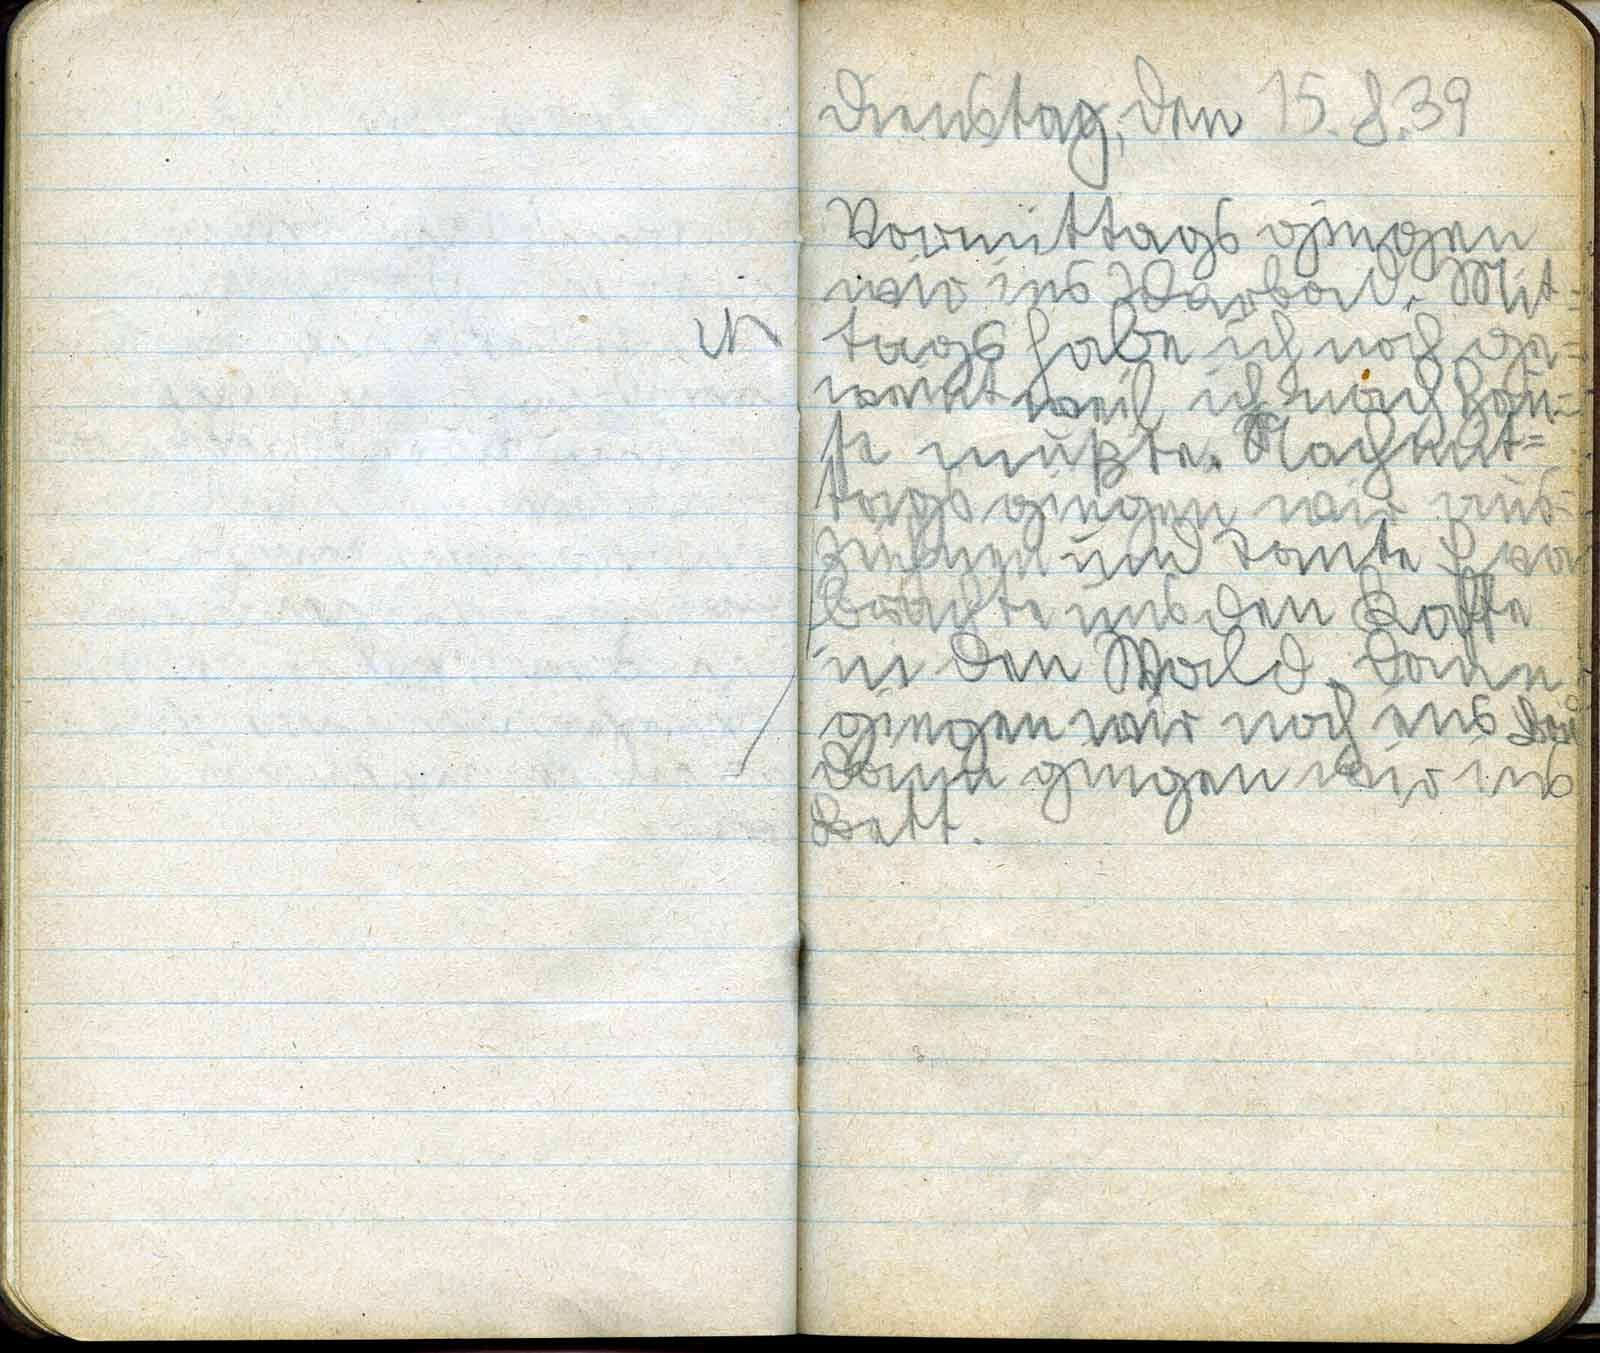 Dienstag, den 15.8.39
Vormittags gingen
wir ins Warbad. Mit=
tags habe ich noch ge=
weint weil ich nach Hau=
se mußte. Nachmit=
tags gingen wir
und Tante Eva
brachte uns den Kaffe
in den Wald. Dann
gingen wir noch ins
dann gingen wir ins
Bett.